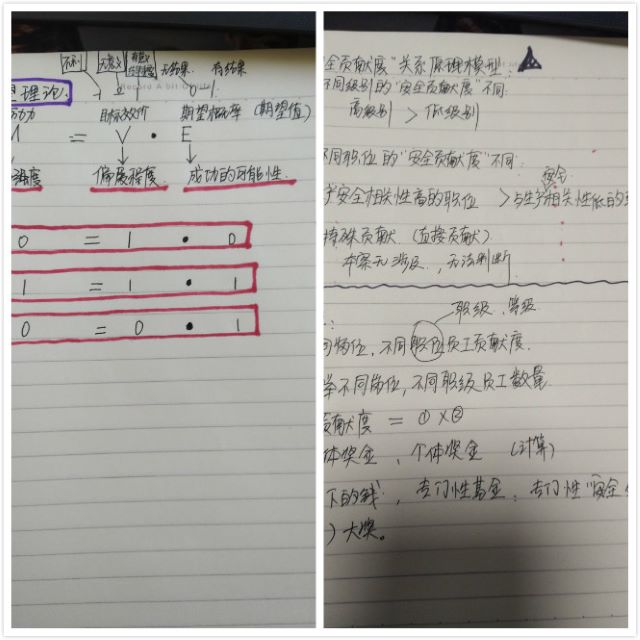 不利 无意义 有意义 无结果 有结果
-1 0 1 0 1
Record A bit of
望理论:
动力 目标效价 期望概率 (期望值)
M = V · E
强度 偏爱程度 成功的可能性
0 = 1 · 0
1 = 1 · 1
0 = 0 · 1
全贡献度"关系原理模型:
不同级别的"安全贡献度"不同:
高级别 > 低级别
不同职位的"安全贡献度"不同:
安全
安全相关性高的职位 > 与生产相关性低的
特殊贡献 (直接贡献)
本案无涉及,无法判断
职级、等级
岗位,不同职位员工贡献度.
不同岗位,不同职级员工数量
贡献度 = ① × ②
体奖金、个体奖金 (计算)
下的钱:专门性基金:专门性"安全
)大奖。